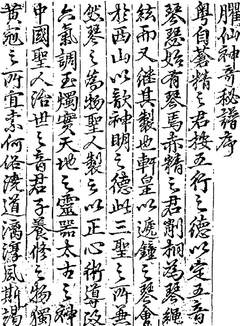 臞仙神奇秘譜序
粵自蒼精之君按五行之德以定五音
琴瑟始有琴焉赤精之君削桐為琴繩
絃而又继其製也軒皇以遞鐘之琴奏
於西山以歆神明之德此三聖之所無
然琴之為物聖人製之以正心術導政
六氣調玉燭實天地之靈器太古之神
中國聖人治世之音君子養修之物獨
黃冠之所宜柰何俗澆道漓淳風斯竭